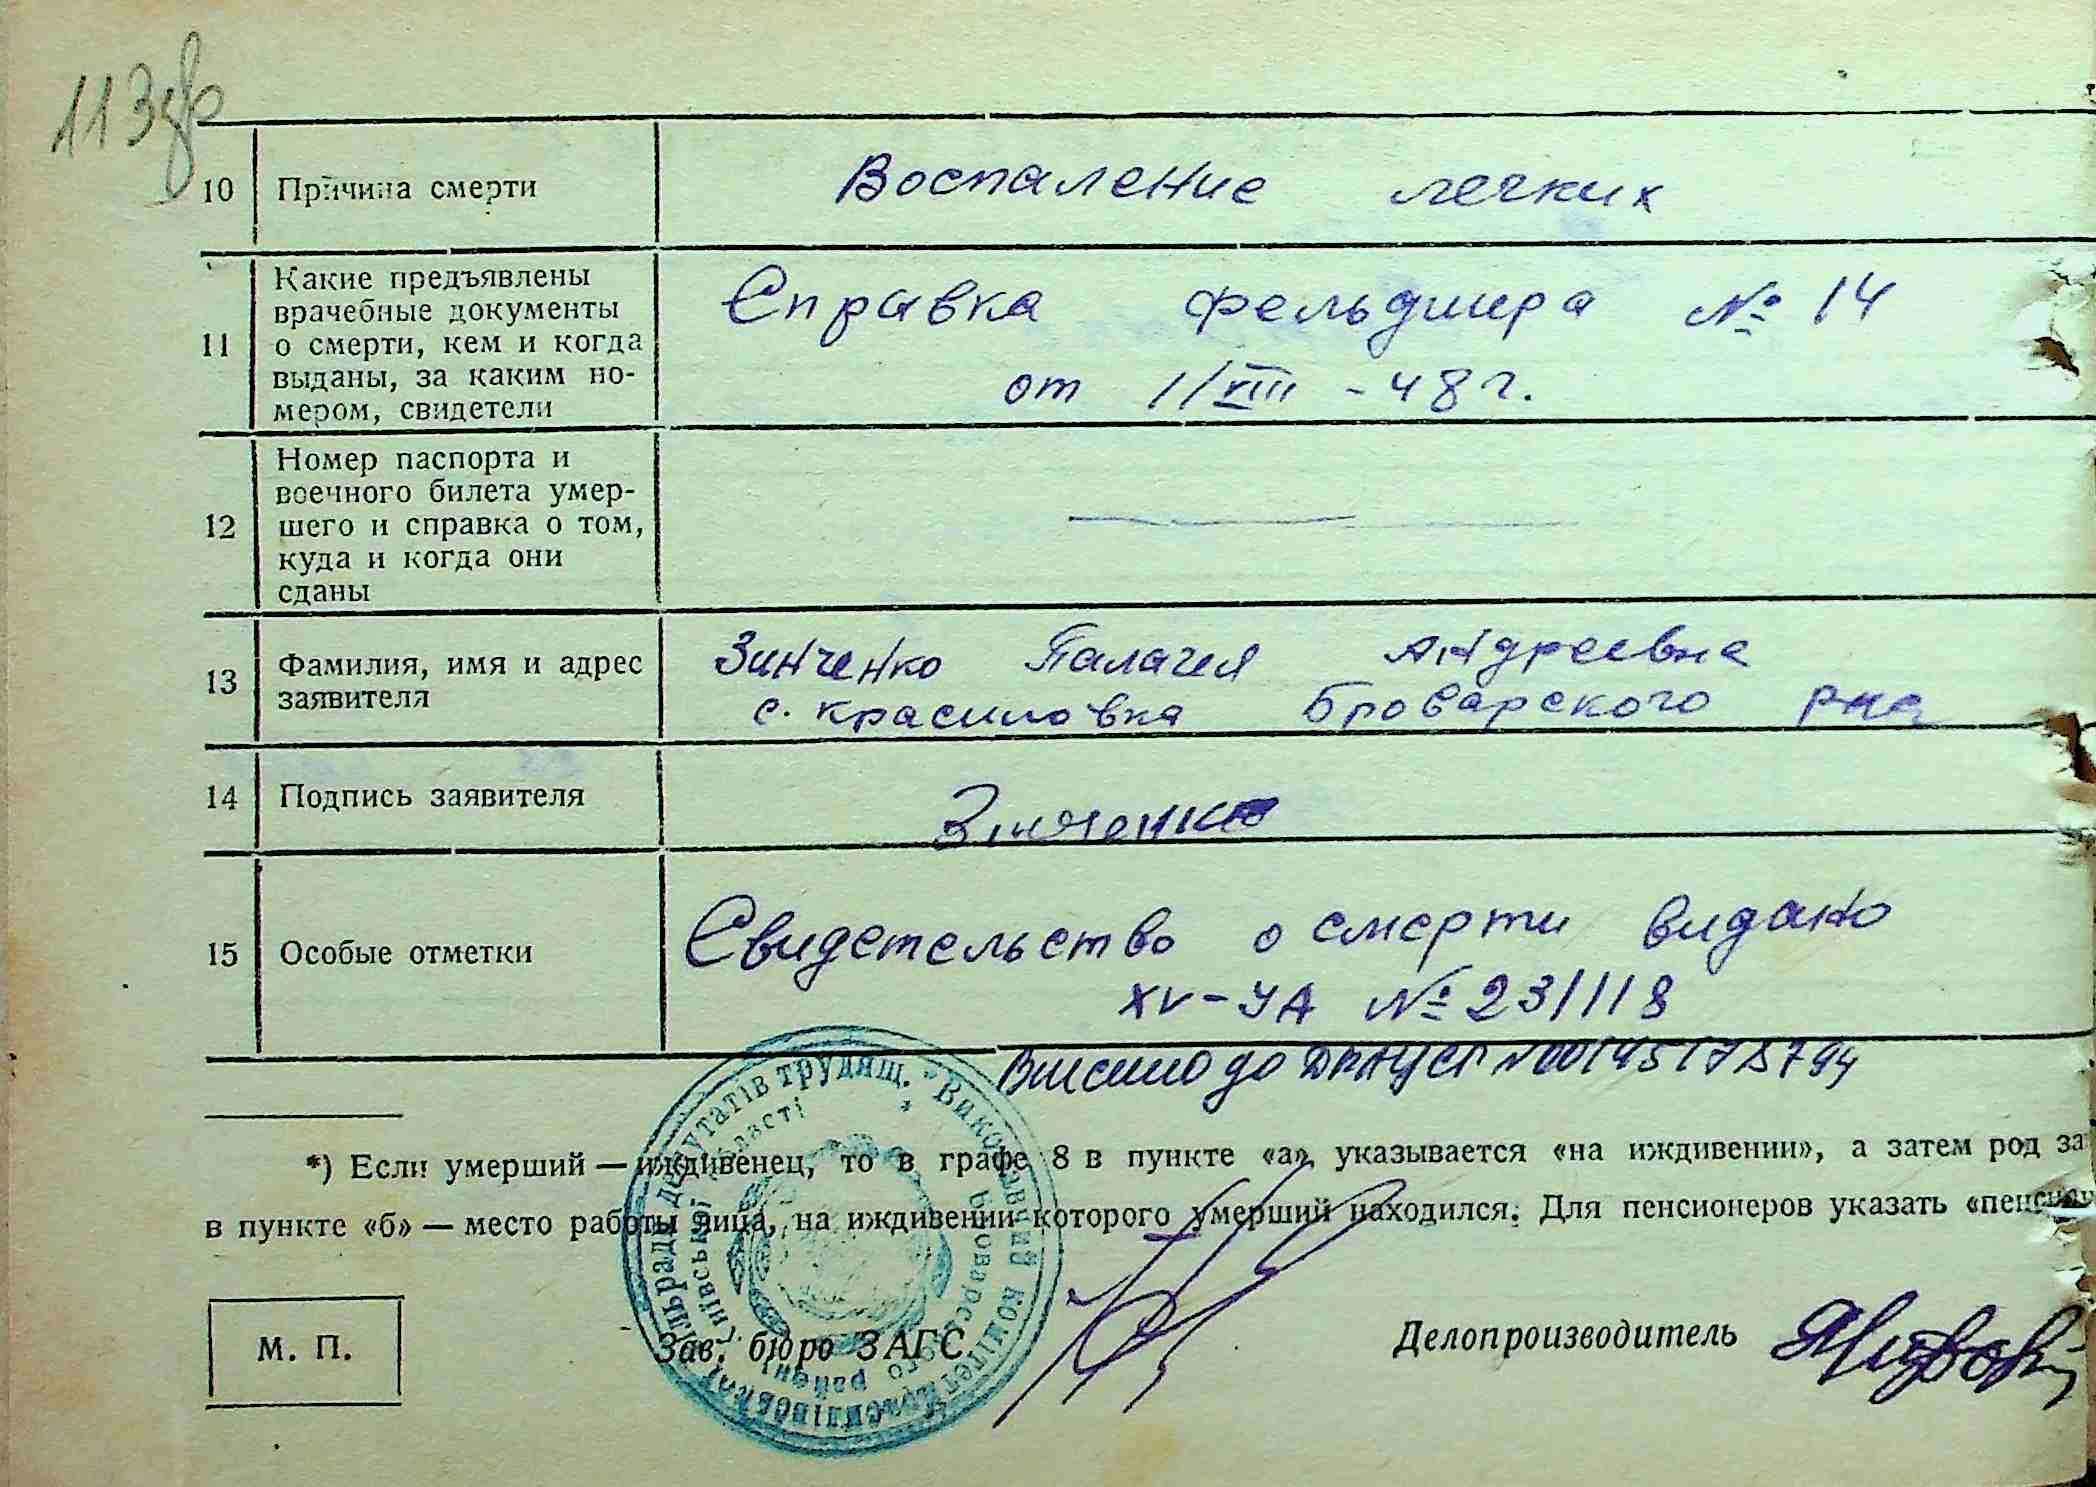 113
10 Причина смерти
Воспаление легких
11 Какие предъявлены
врачебные документы
о смерти, кем и когда
выданы, за каким но-
мером, свидетели
Справка фельдшера № 14
от 1/VIII - 48 г.
12 Номер паспорта и
военного билета умер-
шего и справка о том,
куда и когда они
сданы
13 Фамилия, имя и адрес
заявителя
Зинченко Палагея Андреевна
с. Красиловка Броварского р-на
14 Подпись заявителя
Зинченко
15 Особые отметки
Свидетельство о смерти видано
XV-УА № 231118
до ДРАЦСГ
*) Если умерший — иждивенец, то в графе 8 в пункте «а» указывается «на иждивении», а затем род за
в пункте «б» — место работы лица, на иждивении которого умерший находился. Для пенсионеров указать «пенсия
М. П.
Зав. бюро ЗАГС
Делопроизводитель
Виконавчий комітет Красилівської сільради депутатів трудящ.
Броварського району Київської області